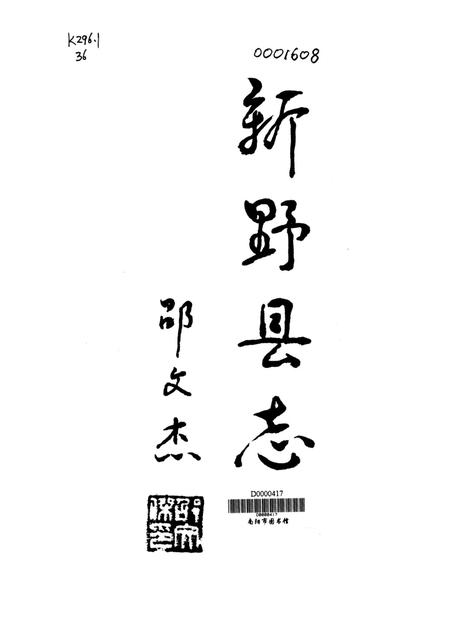 K296.1
36
0001608
新野县志
邵文杰
D0000417
D0000417
南阳市图书馆